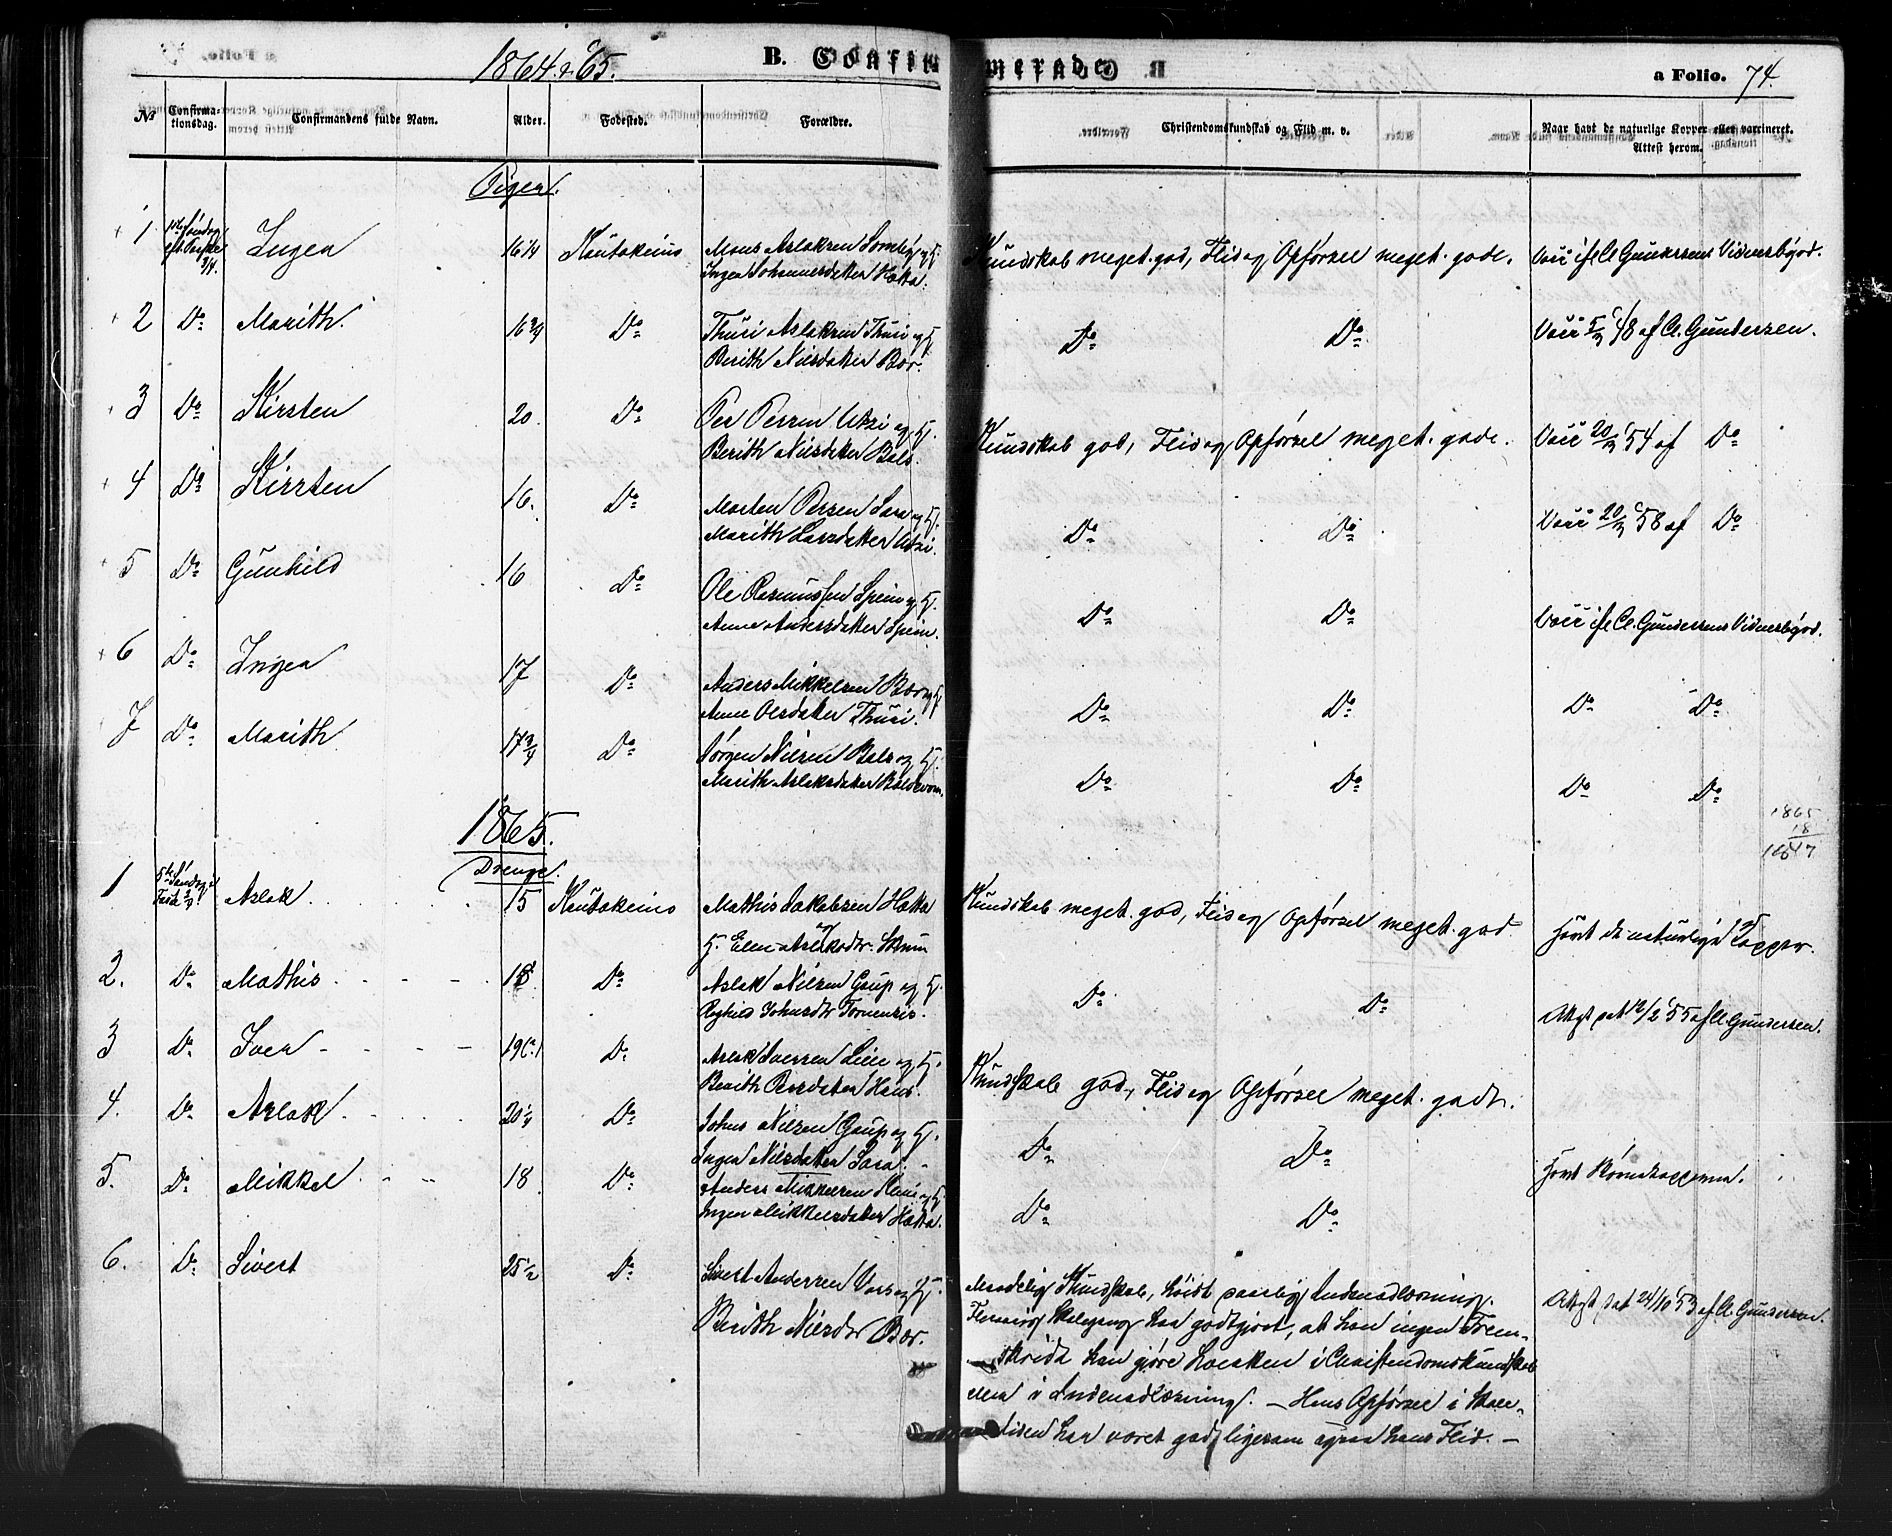 1864 & 65.
B. Confirmerede.
a Folio. 74.
No Confirmationsdag. Confirmandens fulde Navn. Alder. Fødested. Forældre. Christendomskundskab og Flid m. v. Naar havt de naturlige Kopper eller vaccineret. Attest herom.
Piger.
1 1ste Søndag eft. Paaske 3/4. Ingen 16 1/4 Kautokeino Mons Aslaksen Somby og H. Ingen Johannesdatter Hætta. Kundskab meget god, Flid og Opførsel meget gode. Vacc if. Cl. Gundersens Vidnesbyrd.
2 Do Marith. 16 3/4 Do Thuri Aslaksen Thuri og H. Berith Nilsdatter Bær. Do Do Vacc 48 af Cl. Gundersen.
3 Do Kirsten 20 Do Per Persen Utsi og H. Berith Nilsdatter Bals. Kundskab god, Flid og Opførsel meget gode. Vacc 54 af Do
4 Do Kirsten 16. Do Morten Persen Sara og H. Marith Larsdatter Utsi. Do Do Vacc 58 af Do
5 Do Gunhild 16 Do Ole Rasmussen Spein og H. Anne Andersdatter Spein. Do Do Vacc if. Cl. Gundersens Vidnesbyrd.
6 Do Ingen 17 Do Anders Mikkelsen Bær og H. Anne Olsdatter Thuri. Do Do Do Do
7 Do Marith 17 3/4 Do Jørgen Nilsen Bals og H. Marith Aslaksdatter Baldevom. Do Do Do Do
1865
18
1847
1865.
Drenge.
1 5te Søndag i Aslak. 15 Kautokeino Mathis Jakobsen Hætta og H. Elen Aslaksdtr. Skum Kundskab meget god, Flid og Opførsel meget god Havt de naturlige Kopper.
2. Do Mathis 18. Do Aslak Nilsen Gaup og H. Johnsdtr Tornensis. Do Do Attest dat 12/2 55 af Cl. Gundersen.
3 Do Iver 19 Do Aslak Iversen og H. Berith Persdatter Kundskab god, Flid og Opførsel meget godt.
4. Do Aslak 20 1/4 Do Johns Nilsen Gaup og H. Ingen Nilsdatter Sara. Do Do
5. Do Mikkel 18 Do Anders Mikkelsen og H. Ingen Mikkelsdatter Hætta. Do Do Havt
6. Do Sivert 25 1/2 Do Sivert Andersen og H. Berith Nilsdtr Bær. Maadelig Kundskab, høist daarlig Indenadlæsning.
Attest dat 24/10 53 af Cl. Gundersen.
Skolegang har godtgjort, at han ingen Frem-
skridt kan gjøre hverken i Christendomskundskab
eller i Indenadlæsning. — Hans Opførsel i Skole-
tiden har været god, ligesom ogsaa hans Flid. —